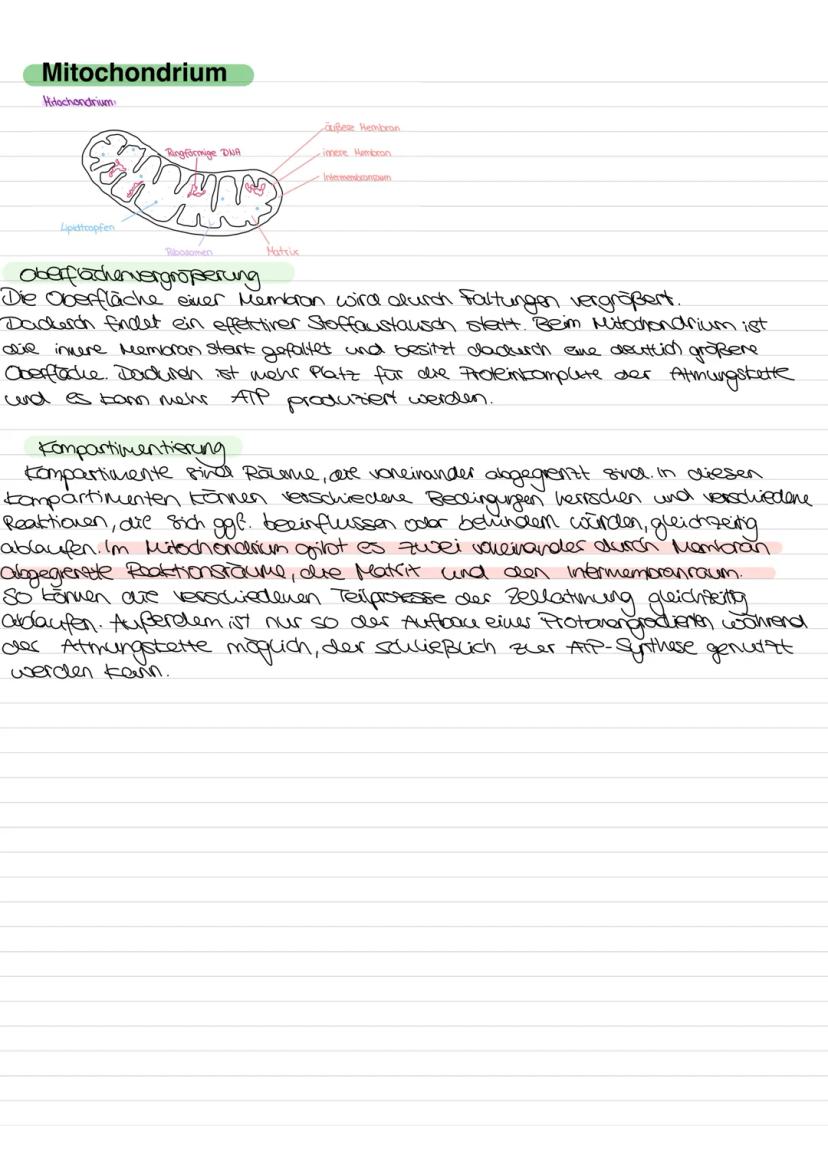 Mitochondrium
Mitochondrium:
äußere Membran
Ringförmige DNA
innere Membran
Intermembranraum
Lipidtropfen
Ribosomen
Matrix
Oberflächenvergrößerung
Die Oberfläche einer Membran wird durch Faltungen vergrößert.
Dadurch findet ein effektiver Stoffaustausch statt. Beim Mitochondrium ist
die innere Membran stark gefaltet und besitzt dadurch eine deutlich größere
Oberfläche. Dadurch ist mehr Platz für die Proteinkomplexe der Atmungskette
und es kann mehr ATP produziert werden.
Kompartimentierung
Kompartimente sind Räume, die voneinander abgegrenzt sind. In diesen
Kompartimenten können verschiedene Bedingungen herrschen und verschiedene
Reaktionen, die sich ggf. beeinflussen oder behindern würden, gleichzeitig
ablaufen. Im Mitochondrium gibt es zwei voneinander durch Membran
abgegrenzte Reaktionsräume, die Matrix und den Intermembranraum.
So können die verschiedenen Teilprozesse der Zellatmung gleichzeitig
ablaufen. Außerdem ist nur so der Aufbau eines Protonengradienten während
der Atmungskette möglich, der schließlich zur ATP-Synthese genutzt
werden kann.